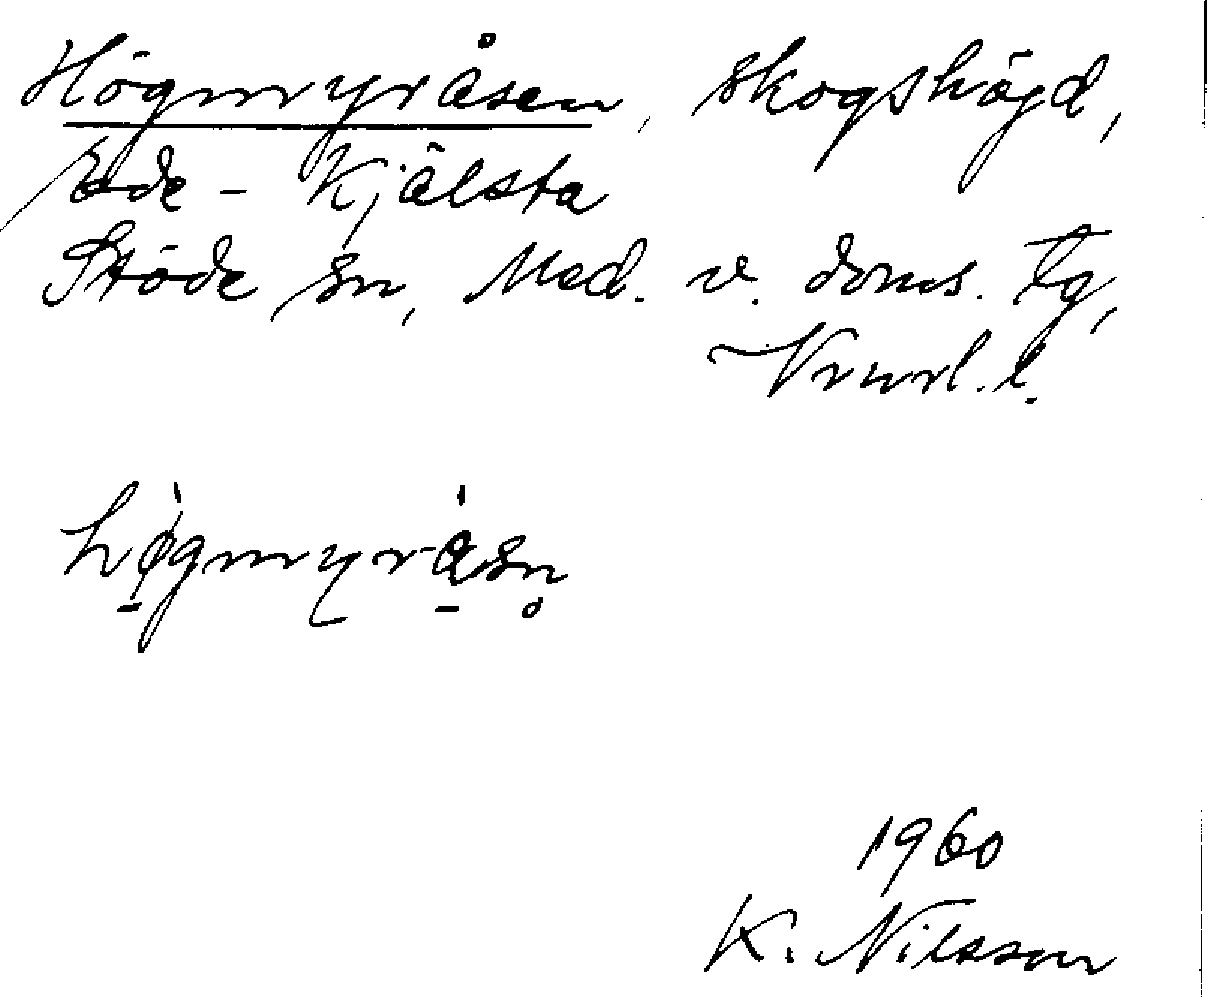 Högmyråsen, skogshöjd,
Ede - Kjälsta
Stöde sn, Med. v. doms. tg,
Vnrl. l.
høgmyråsn̥
1960
K. Nilsson